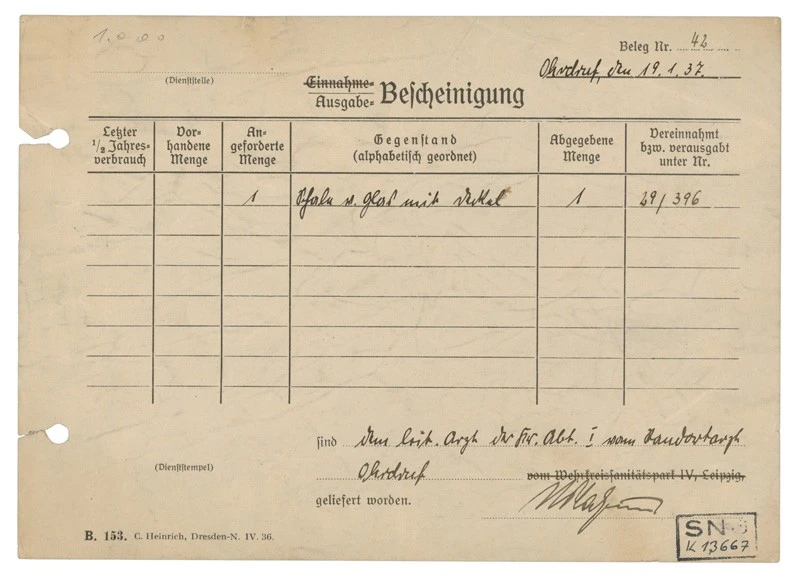 1.0.00
Beleg Nr. 42
Ohrdruf, den 19.1.37.
(Dienststelle)
Einnahme-
Ausgabe- Bescheinigung
Letzter 1/2 Jahres-verbrauch
Vor-handene Menge
An-geforderte Menge
Gegenstand (alphabetisch geordnet)
Abgegebene Menge
Vereinnahmt bzw. verausgabt unter Nr.
1 Schale v. Glas mit Deckel 1 29/396
sind dem leit. Arzt der Kr. Abt. I vom Standortarzt
Ohrdruf vom Wehrkreissanitätspark IV, Leipzig,
(Dienststempel)
geliefert worden.
B. 153. C. Heinrich, Dresden-N. IV. 36.
SN-
K 13667